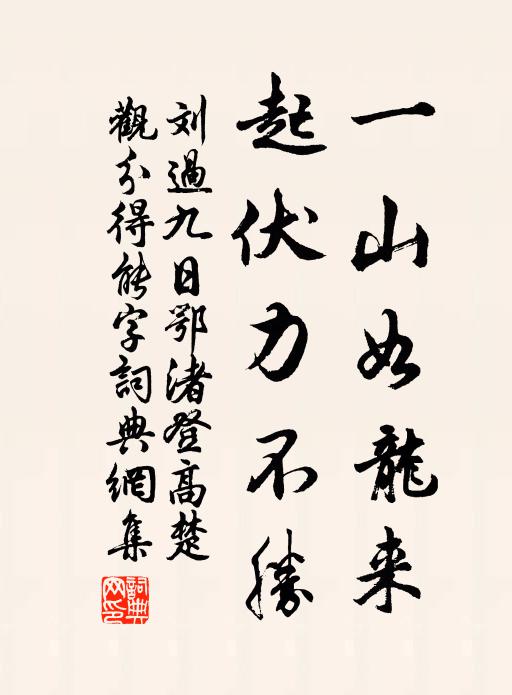 一山如龍来
起伏力不勝
刘過九日鄂渚登高楚
觀分得能字詞典網集
詞典网印